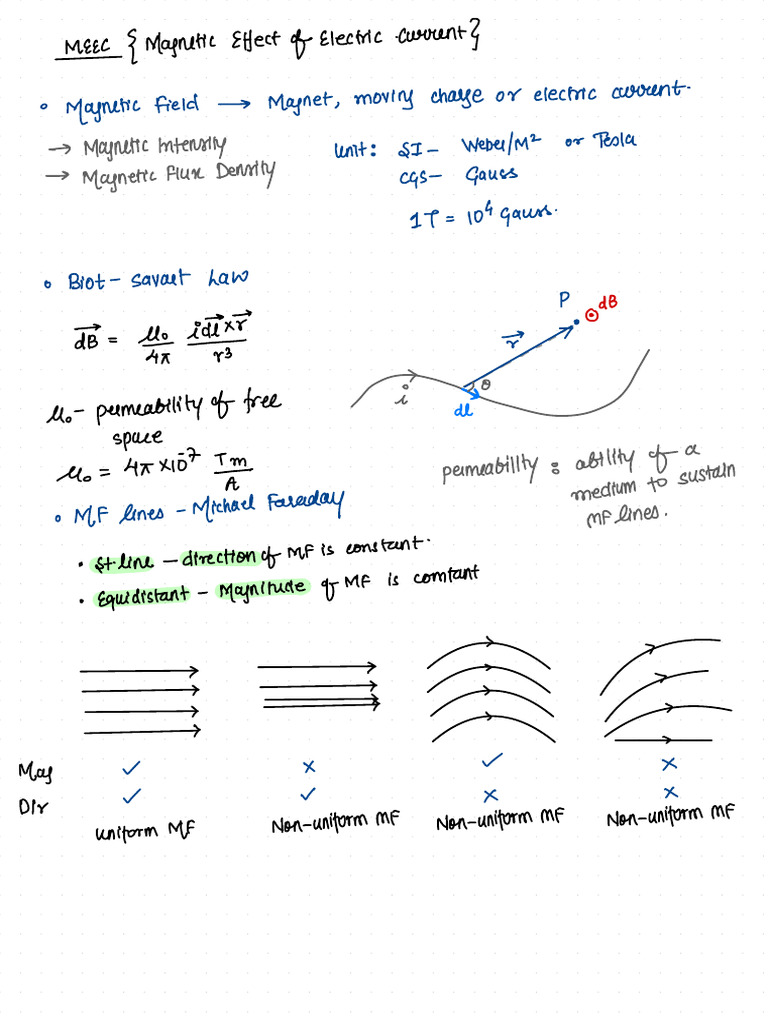 MEEC { Magnetic Effect of Electric current }
• Magnetic field → Magnet, moving charge or electric current.
→ Magnetic Intensity
→ Magnetic Flux Density
Unit : SI – Weber/M² or Tesla
CGS – Gauss
1T = 10⁴ Gauss.
• Biot – savart Law
P
dB
r
θ
i
dl
dB = μ₀/4π i dl × r / r³
μ₀ – permeability of free
space
μ₀ = 4π × 10⁻⁷ Tm/A
permeability : ability of a
medium to sustain
MF lines.
• MF lines – Michael Faraday
• St. line – direction of MF is constant.
• Equidistant – Magnitude of MF is constant
Mag ✓ × ✓ ×
Dir ✓ ✓ × ×
uniform MF Non-uniform MF Non-uniform MF Non-uniform MF